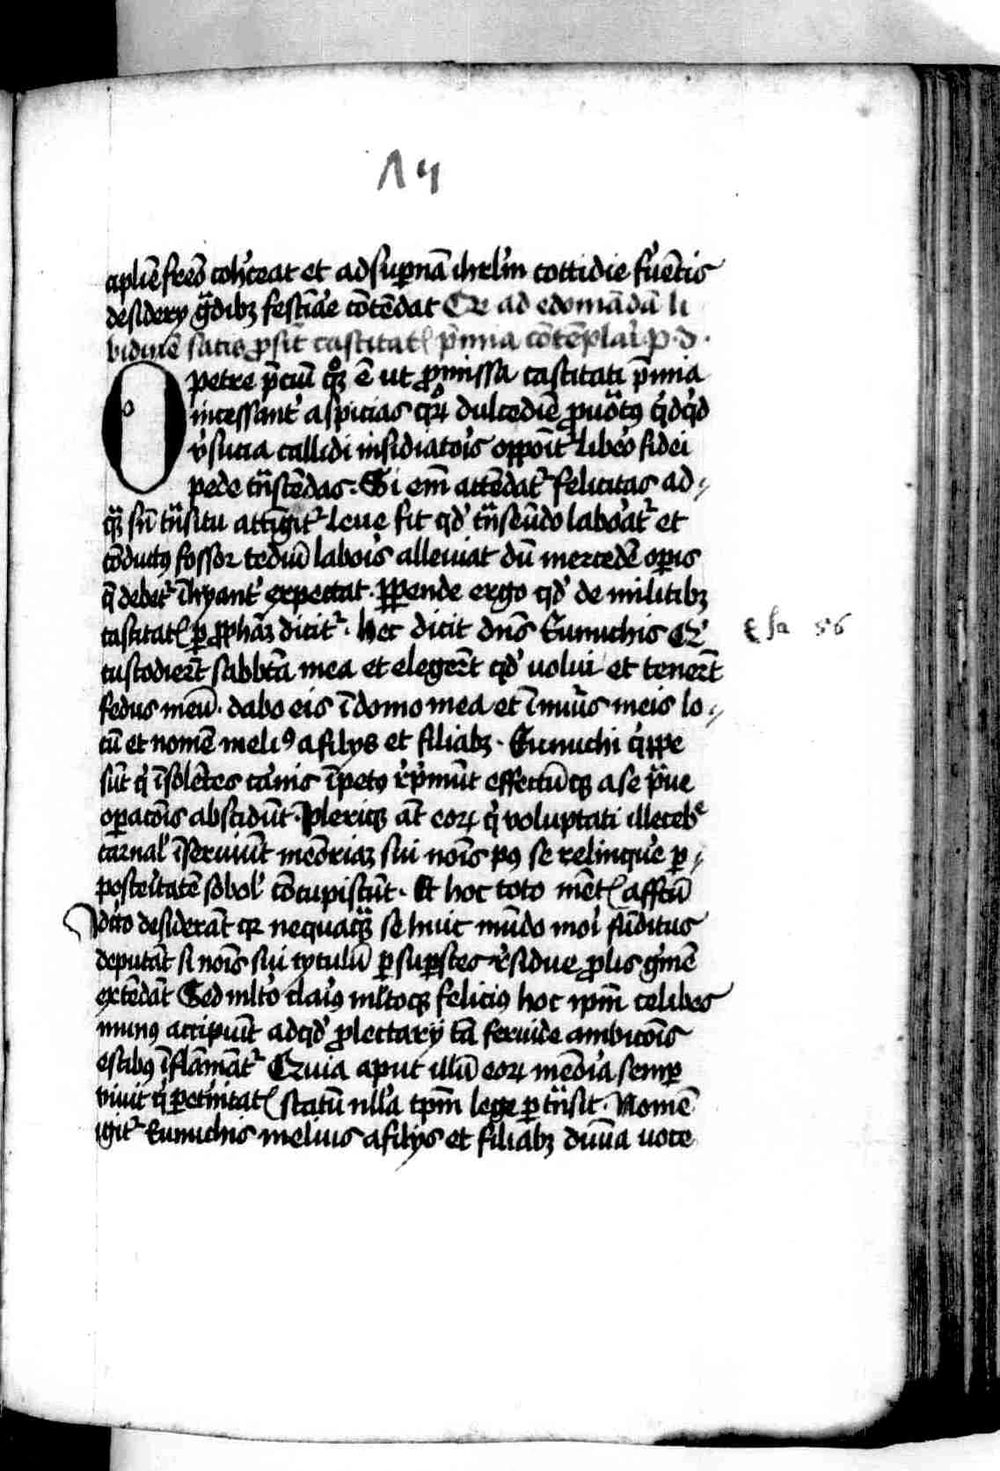 14
aplie͞ fre͞s cohc͛eat et ad sup̲na͞ ihrl͛m cottidie fue͞tis
desiderij gͣdibꝫ festiͣe co͞te͞dat Qꝛ ad edoma͞da͞ li
bidine͞ satis ꝓsit castitatꝭ p͞mia co͞te͞plari p. d.
O petre p͞ciu͞ qꝫ e͞ ut ꝓmissa castitati p͞mia
incessant͛ aspicias dulcedie͞ qͥdqͥd
v͛sutia callidi insidiatoꝭ oppo͞it libeo fidei
pede tͣ͞sce͞das. Si em͞ atte͞dat͛ felicitas ad
qͣ͞ sn͞ tͣ͞situ atti͞git͛ leue fit qd͛ tͣ͞seu͞do laboat͛ et
co͞ductꝰ fossor tediu͞ labois alleuiat du͞ mercede͞ op̲is
q͞ debet͛ i͞hyant͛ expectat. Pp̲ende ergo qd͛ de militibꝫ
castitatꝭ p̲ ꝓpha͞ꝫ dicit͛. Hec dicit dn͞s Eunuchis Qͥ
custodier͞t sabb͞ta mea et eleger͞t qd͛ uolui et tener͞t
fedus meu͞. dabo eis i͞ domo mea et i͞ muris meis lo
cu͞ et nome͞ meliꝰ a filijs et filiabꝫ. Eunuchi qͥppe
su͞t qͥ i͞sole͞tes caͥnis i͞petꝰ rep̲mu͞t effectu͞qꝫ a se pͣue
op̲aco͞is abscidu͞t. Pleriqꝫ at͞ eoꝝ qͥ voluptati illecebͤ
carnal͛ i͞seruiu͞t me͞oriaꝫ sui no͞is pꝰ se relinque p̲
posteͥtate͞ sobol͛ co͞cupiscu͞t. Et hoc toto me͞tꝭ affc͞u
Idcͥco desidera͞t qꝛ nequaqͣ͞ se huic mu͞do moi fu͞ditus
deputa͞t si no͞is sui tytulu͞ p̲ sup̲stes residue ꝓlis ge͛me͞
exte͞da͞t Sed ml͛to claiꝰ ml͛toqꝫ feliciꝰ hoc ip̅m celibes
munꝰ accipiu͞t ad qd͛ ꝓlectarij ta͞ feruide ambico͞is
estibꝰ i͞flam͞at͛ Quia aput illu͞ eoꝝ me͞oia semp̲
viuit qͥ et͛nitatꝭ statu͞ nll͛a tp̅m lege p̲tͣ͞sit. Nome͞
igit͛ Eunuchis melius a filijs et filiabꝫ diui͞a uoce
Esa 56